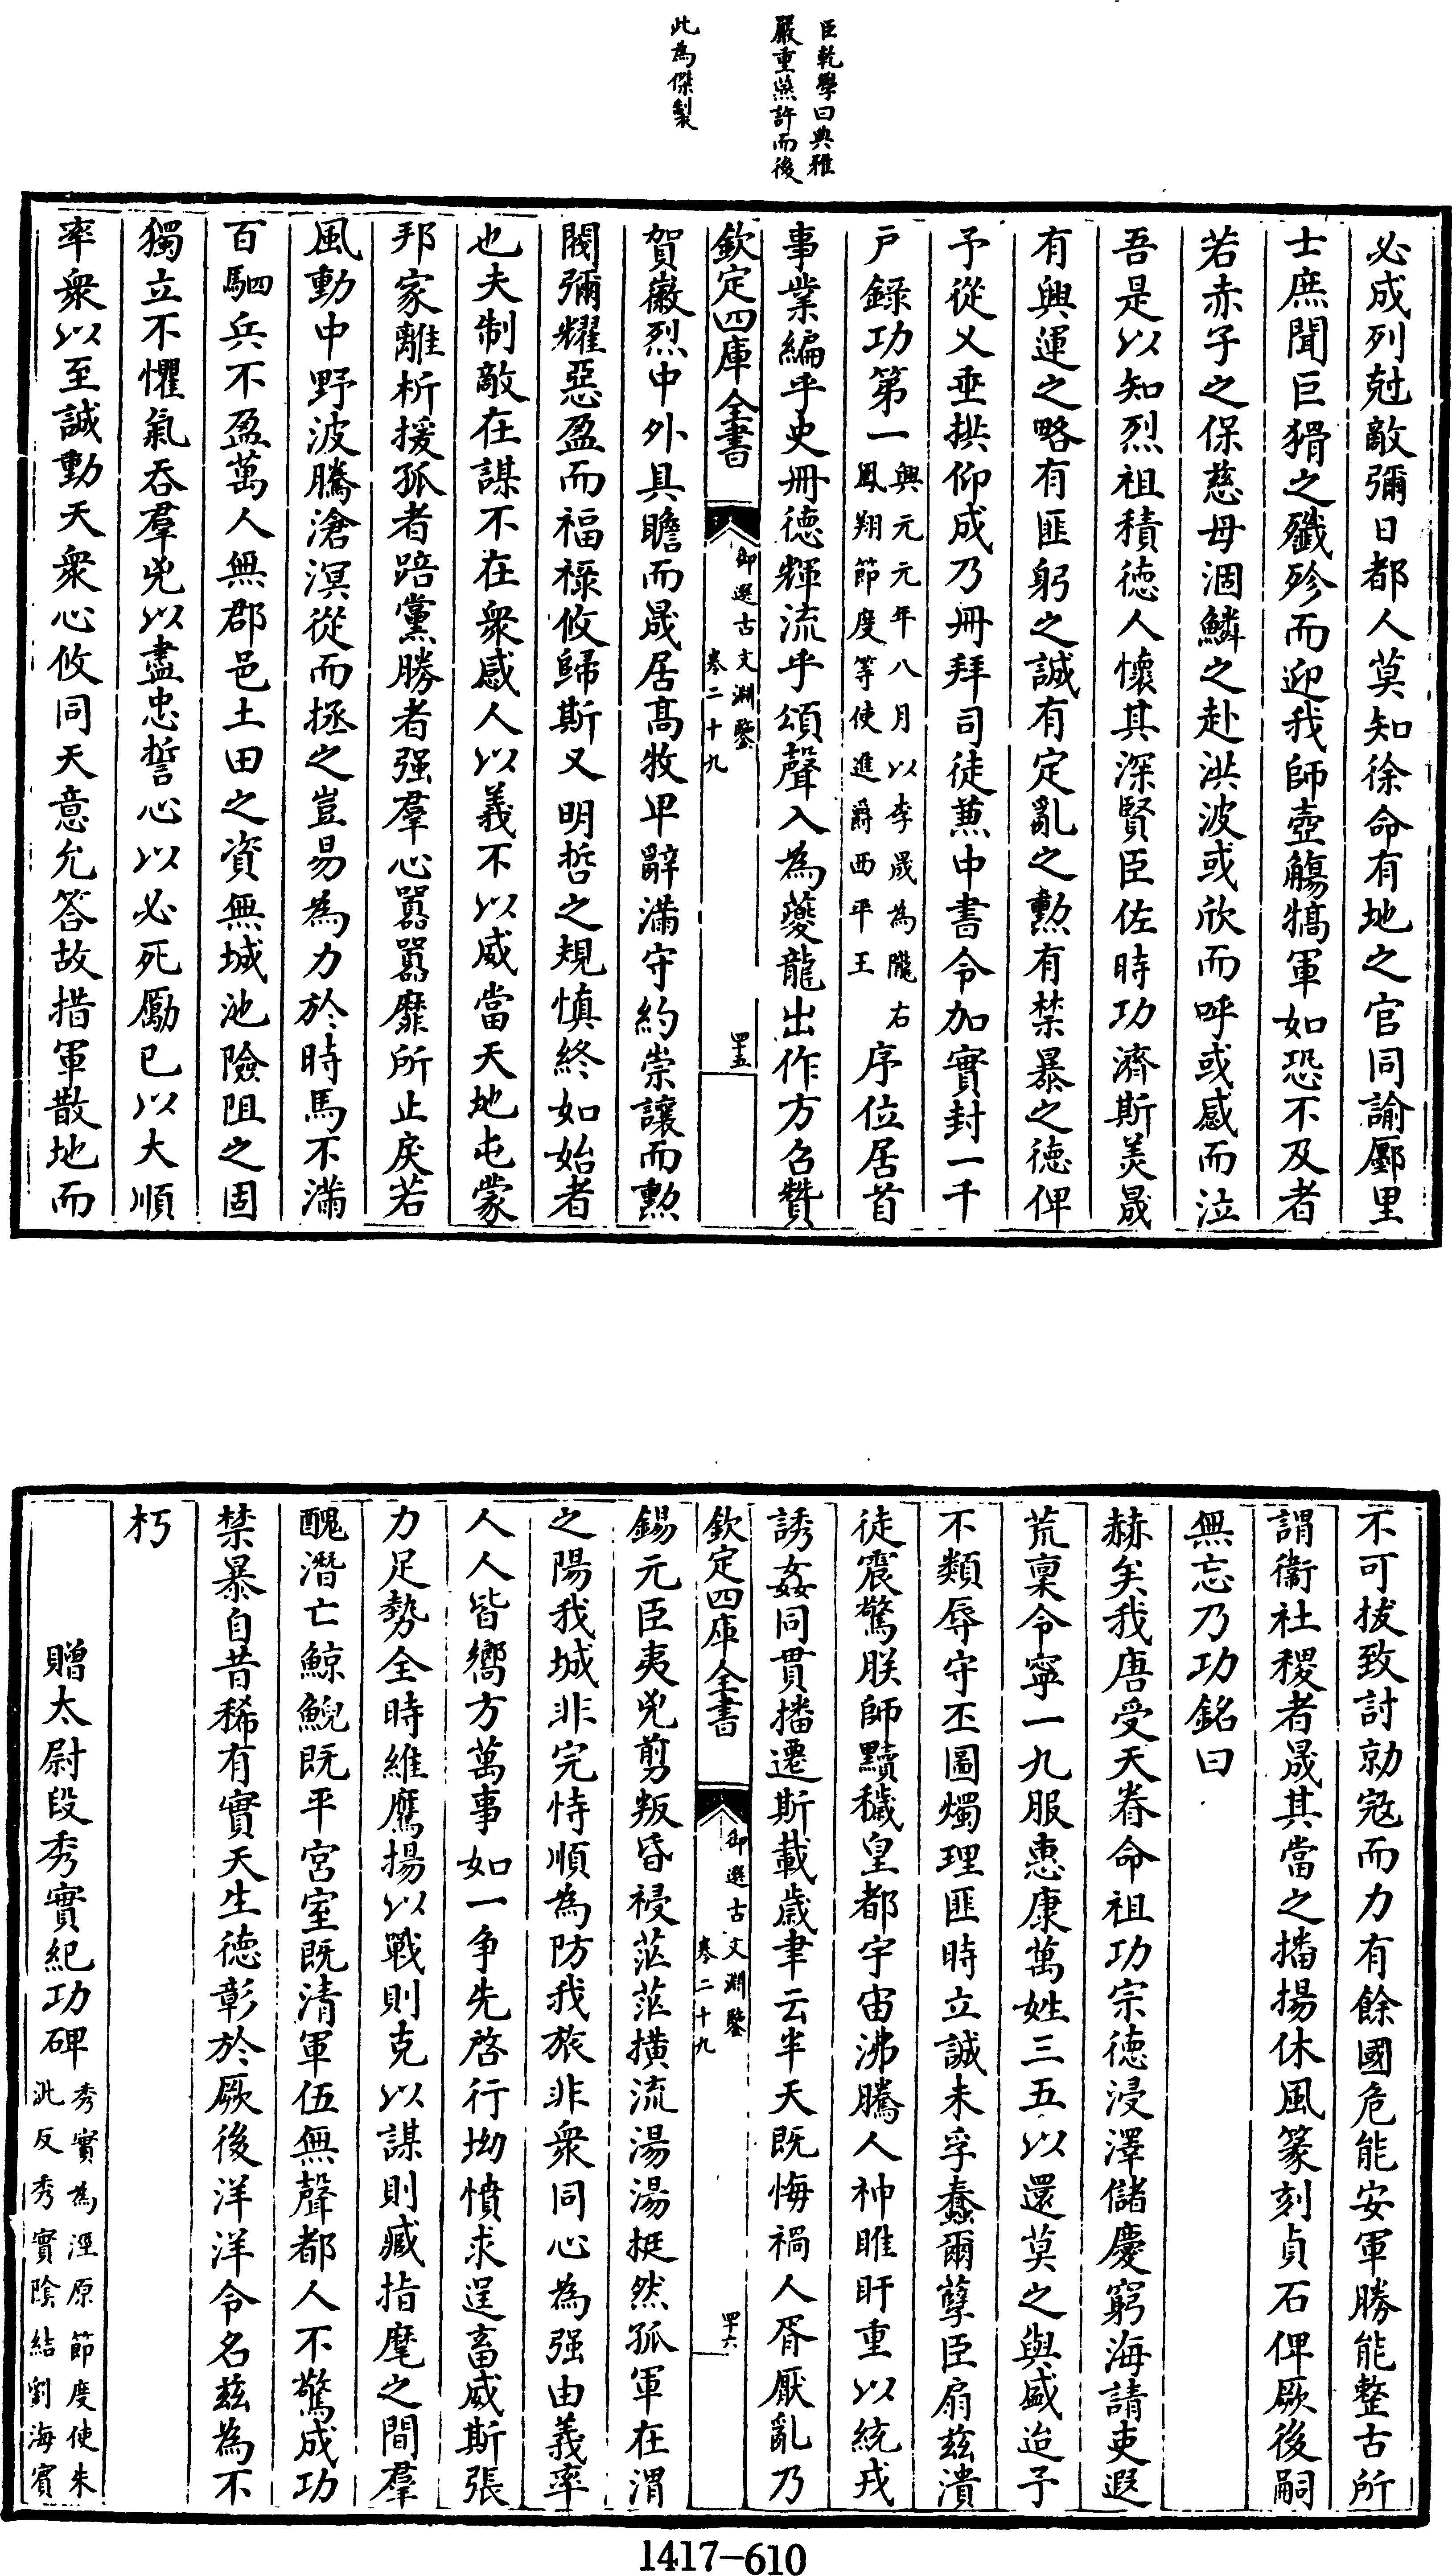 臣乾學曰典雅
嚴重燕許而後
此為傑製
必成列剋敵彌日都人莫知徐命有地之官同諭鄽里
士庶聞巨猾之殱殄而迎我師壺觴犒軍如恐不及者
若赤子之保慈母涸鱗之赴洪波或欣而呼或感而泣
吾是以知烈祖積徳人懷其深賢臣佐時功濟斯美晟
有興運之略有匪躬之誠有定亂之勲有禁暴之徳俾
予從乂垂拱仰成乃冊拜司徒兼中書令加實封一千
戸錄功第一
興元元年八月以李晟為隴右
鳳翔節度等使進爵西平王
序位居首
事業編乎史冊徳輝流乎頌聲入為夔龍出作方召贊
欽定四庫全書
御選古文淵鑒
卷二十九
四十五
賀徽烈中外具瞻而晟居髙牧卑辭滿守約崇讓而勲
閥彌耀惡盈而福祿攸歸斯又明哲之規慎終如始者
也夫制敵在謀不在衆感人以義不以威當天地屯蒙
邦家離析援孤者踣黨勝者强羣心嚚嚚靡所止戾若
風動中野波騰滄溟從而拯之豈易為力於時馬不滿
百駟兵不盈萬人無郡邑土田之資無城池險阻之固
獨立不懼氣吞羣兇以盡忠誓心以必死勵已以大順
率衆以至誠動天衆心攸同天意允答故措軍散地而
不可拔致討勍宼而力有餘國危能安軍勝能整古所
謂衞社稷者晟其當之播揚休風篆刻貞石俾厥後嗣
無忘乃功銘曰
赫矣我唐受天眷命祖功宗徳浸澤儲慶窮海請吏遐
荒稟令寧一九服惠康萬姓三五以還莫之與盛迨予
不類辱守丕圖燭理匪時立誠未孚蠢爾孽臣扇兹潰
徒震驚朕師黷穢皇都宇宙沸騰人神睢盱重以統戎
誘姦同貫播遷斯載歳聿云半天既悔禍人胥厭亂乃
欽定四庫全書
御選古文淵鑒
卷二十九
四十六
錫元臣夷兇剪叛昏祲茫茫横流湯湯挺然孤軍在渭
之陽我城非完恃順為防我旅非衆同心為强由義率
人人皆嚮方萬事如一争先啓行坳憤求逞畜威斯張
力足勢全時維鷹揚以戰則克以謀則臧指麾之間羣
醜潛亡鯨鯢既平宮室既清軍伍無聲都人不驚成功
禁暴自昔稀有實天生徳彰於厥後洋洋令名兹為不
朽
贈太尉段秀實紀功碑
秀實為涇原節度使朱
泚反秀實隂結劉海賓
1417-610